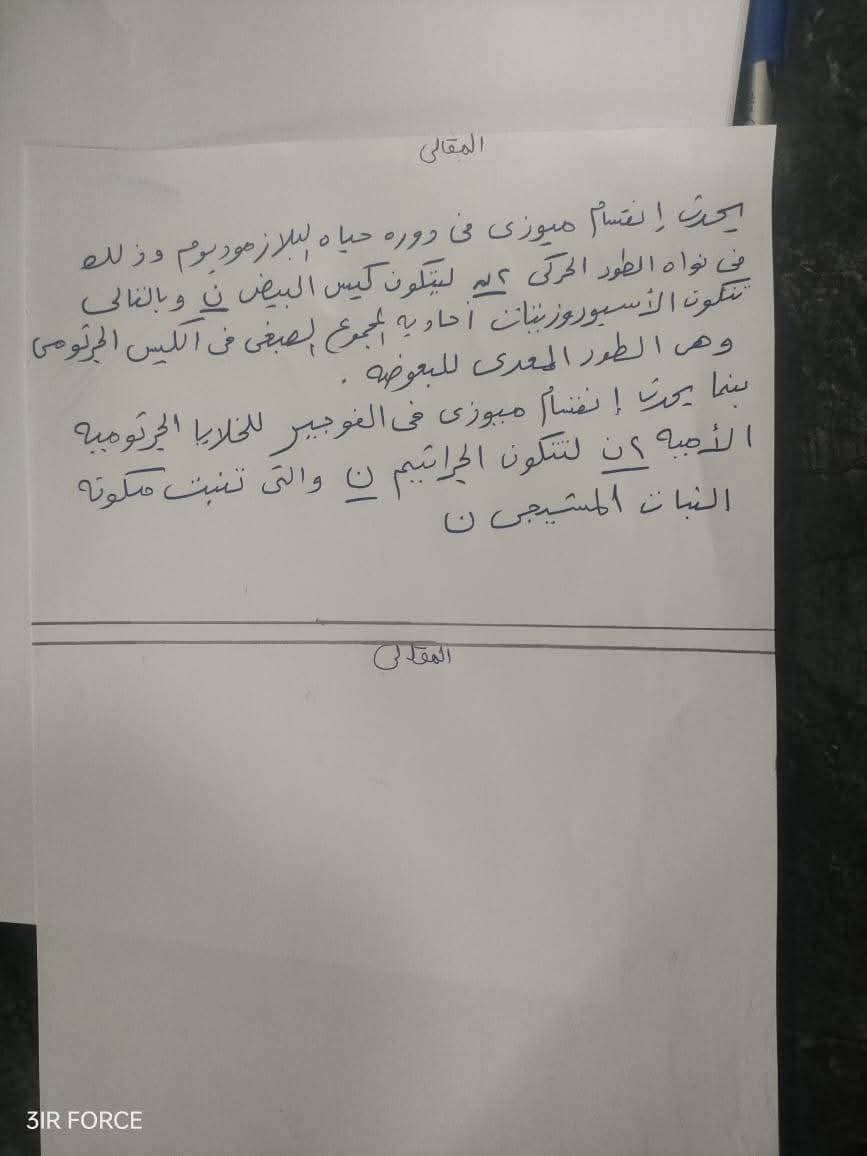 المقالى
يحدث إنقسام ميوزى فى دوره حياه البلازموديوم وذلك
فى نواه الطور الحركى ٢ن ليتكون كيس البيض ن وبالتالى
تتكون الأسبوروزيتات أحاديه المجموع الصبغى فى الكيس الجرثومى
وهى الطور المعدى للبعوضه .
بنما يحدث إنقسام ميوزى فى الفوجير للخلايا الجرثوميه
الأميه ٢ن لتتكون الجراثيم ن والتى تنبت مكونه
النبات المشيجى ن
المقالى
3IR FORCE